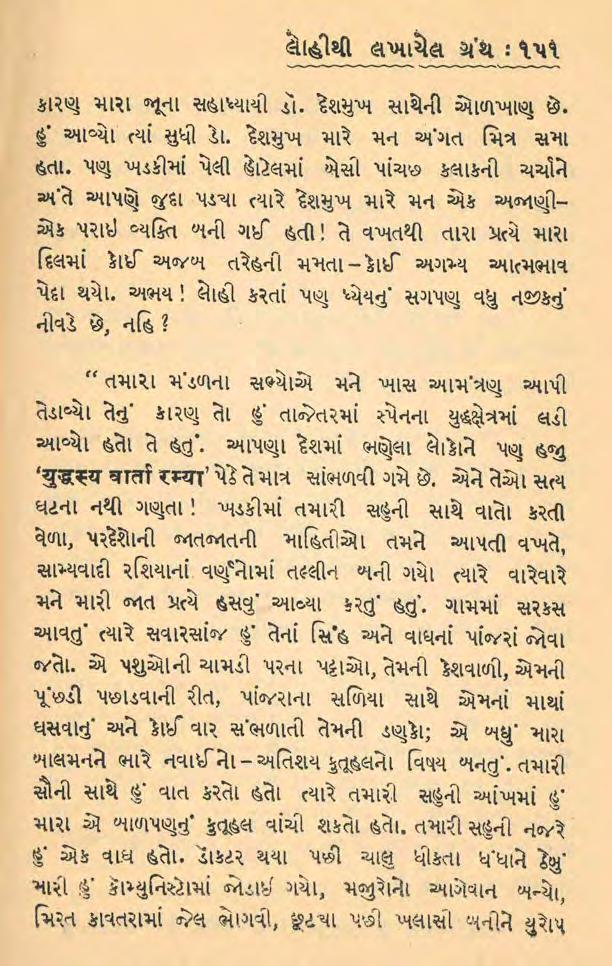 લોહીથી લખાયેલ ગ્રંથ : ૧૫૧
કારણ મારા જૂના સહાધ્યાયી ડૉ. દેશમુખ સાથેની ઓળખાણ છે.
હું આવ્યો ત્યાં સુધી ડો. દેશમુખ મારે મન અંગત મિત્ર સમા
હતા. પણ ખડકીમાં પેલી હોટેલમાં બેસી પાંચછ કલાકની ચર્ચાને
અંતે આપણે જુદા પડ્યા ત્યારે દેશમુખ મારે મન એક અજાણી–
એક પરાઇ વ્યક્તિ બની ગઈ હતી! તે વખતથી તારા પ્રત્યે મારા
દિલમાં કોઈ અજબ તરેહની મમતા – કોઈ અગમ્ય આત્મભાવ
પેદા થયો. અભય! લોહી કરતાં પણ ધ્યેયનું સગપણ વધુ નજીકનું
નીવડે છે, નહિ?
“ તમારા મંડળના સભ્યોએ મને ખાસ આમંત્રણ આપી
તેડાવ્યો તેનું કારણ તો હું તાજેતરમાં સ્પેનના યુદ્ધક્ષેત્રમાં લડી
આવ્યો હતો તે હતું. આપણા દેશમાં ભણેલા લોકોને પણ હજુ
‘युद्धस्य वार्ता रम्या’ પેઠે તે માત્ર સાંભળવી ગમે છે. એને તેઓ સત્ય
ઘટના નથી ગણતા! ખડકીમાં તમારી સહુની સાથે વાતો કરતી
વેળા, પરદેશોની જાતજાતની માહિતીઓ તમને આપતી વખતે,
સામ્યવાદી રશિયાનાં વર્ણનોમાં તલ્લીન બની ગયો ત્યારે વારેવારે
મને મારી જાત પ્રત્યે હસવું આવ્યા કરતું હતું. ગામમાં સરકસ
આવતું ત્યારે સવારસાંજ હું તેનાં સિંહ અને વાઘનાં પાંજરાં જોવા
જતો. એ પશુઓની ચામડી પરના પટ્ટાઓ, તેમની કેશવાળી, એમની
પૂંછડી પછાડવાની રીત, પાંજરાના સળિયા સાથે એમનાં માથાં
ઘસવાનું અને કોઈ વાર સંભળાતી તેમની ડણકો; એ બધું મારા
બાલમનને ભારે નવાઈનો – અતિશય કુતૂહલનો વિષય બનતું. તમારી
સૌની સાથે હું વાત કરતો હતો ત્યારે તમારી સહુની આંખમાં હું
મારા એ બાળપણનું કુતૂહલ વાંચી શકતો હતો. તમારી સહુની નજરે
હું એક વાઘ હતો. ડૉકટર થયા પછી ચાલુ ધીકતા ધંધાને ઠેબું
મારી હું કૉમ્યુનિસ્ટોમાં જોડાઇ ગયો, મજૂરોનો આગેવાન બન્યો,
મિરત કાવતરામાં જેલ ભોગવી, છૂટયા પછી ખલાસી બનીને યુરોપ